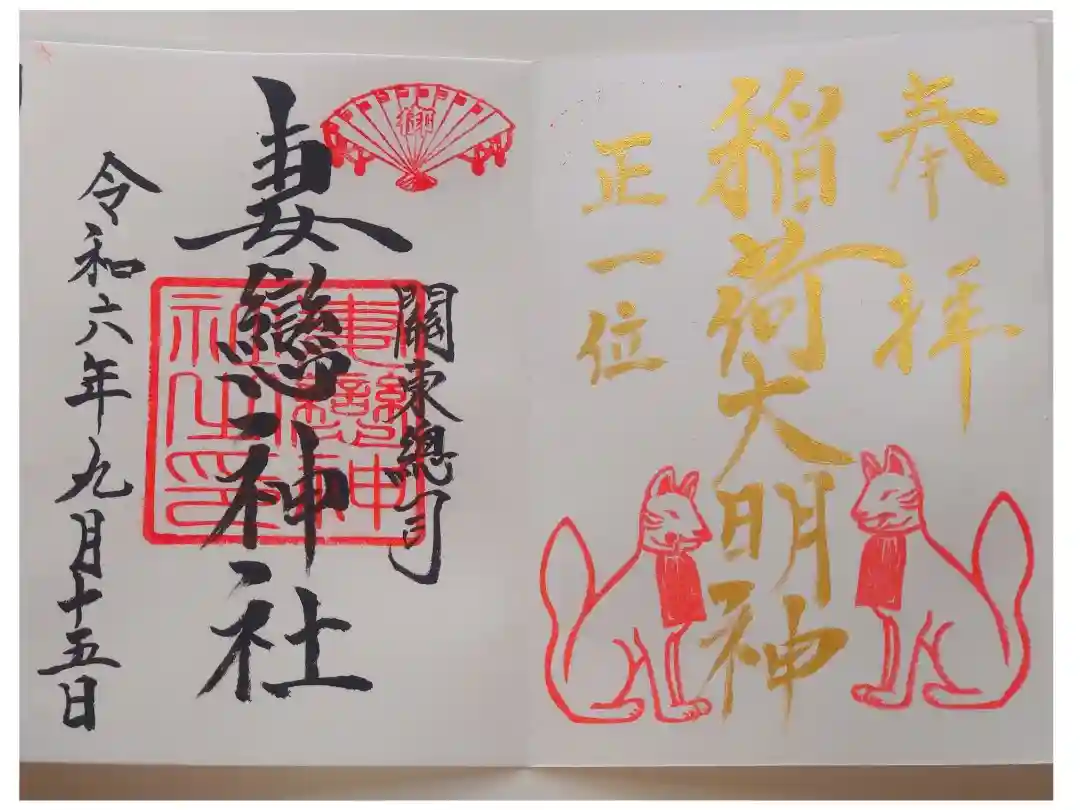 奉拝
稲荷大明神
正一位
關東總司
妻戀神社
令和六年九月十五日
御
妻戀神
社之印